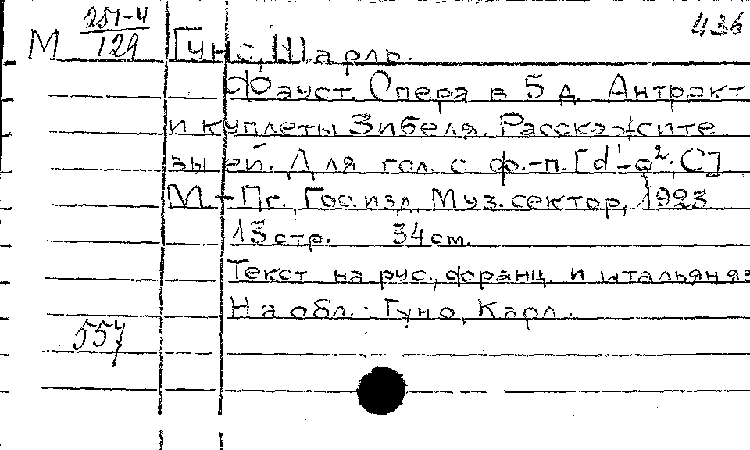 436
М 251-4/129 Гуно, Шарль.
Фауст. Опера в 5 д. Антракт
и куплеты Зибеля. Расскажите
вы ей. Для гол. с ф.-п. [d¹-g², C]
М.-Пг., Гос. изд. Муз. сектор, 1923
13 стр. 34 см.
Текст на рус., франц. и итальянск
На обл.: Гуно, Карл.
557